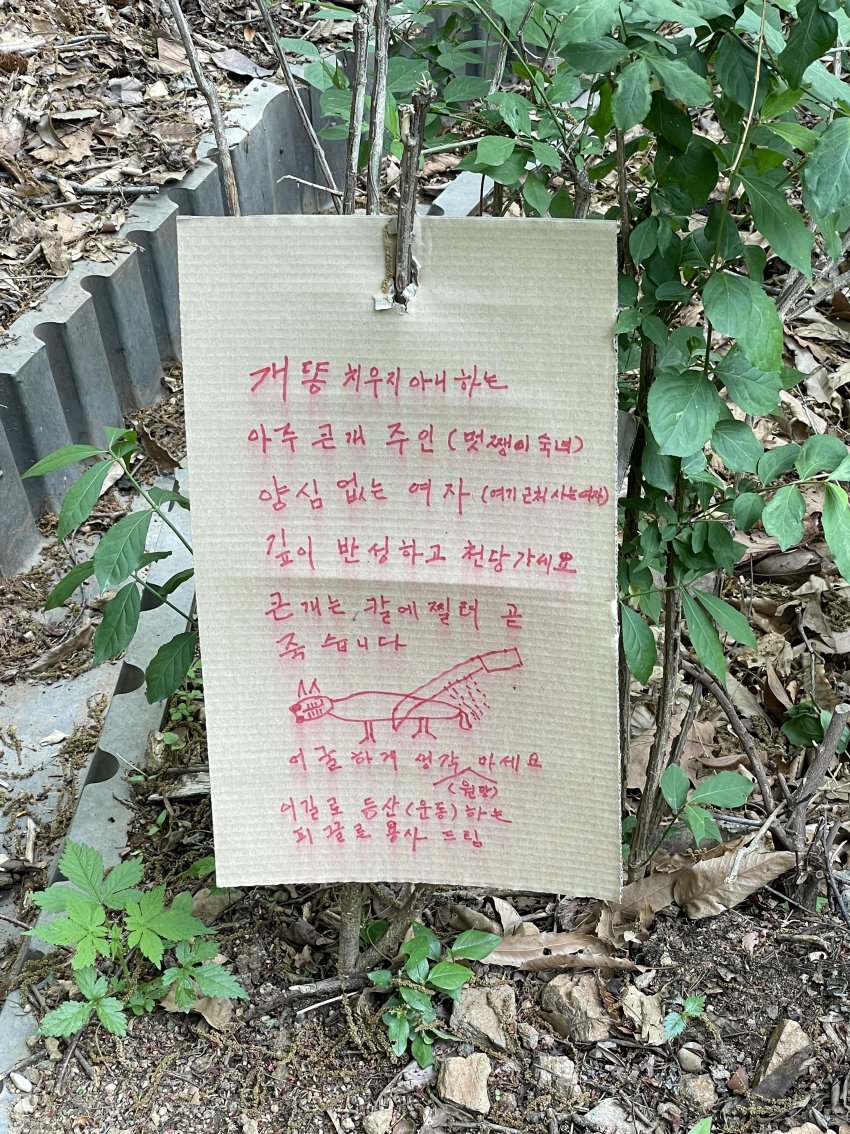 개똥 치우지 아니하는
아주 큰개 주인 (멋쨍이 숙녀)
양심 없는 여자 (여기 근처 사는 여자)
깊이 반성하고 천당가세요
큰개는 칼에 찔려 곧
죽습니다
억굴하게 생각 마세요
(원망)
이길로 등산(운동)하는
피끌로 용사 드림